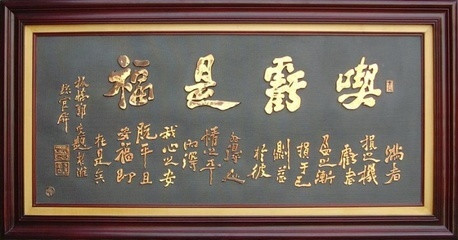 喫虧是福
滿者
損之機
虧者
盈之漸
損于己
則益
於彼
外得人
情之平
內得
我心之安
既平且
安福即
在是矣
板橋鄭